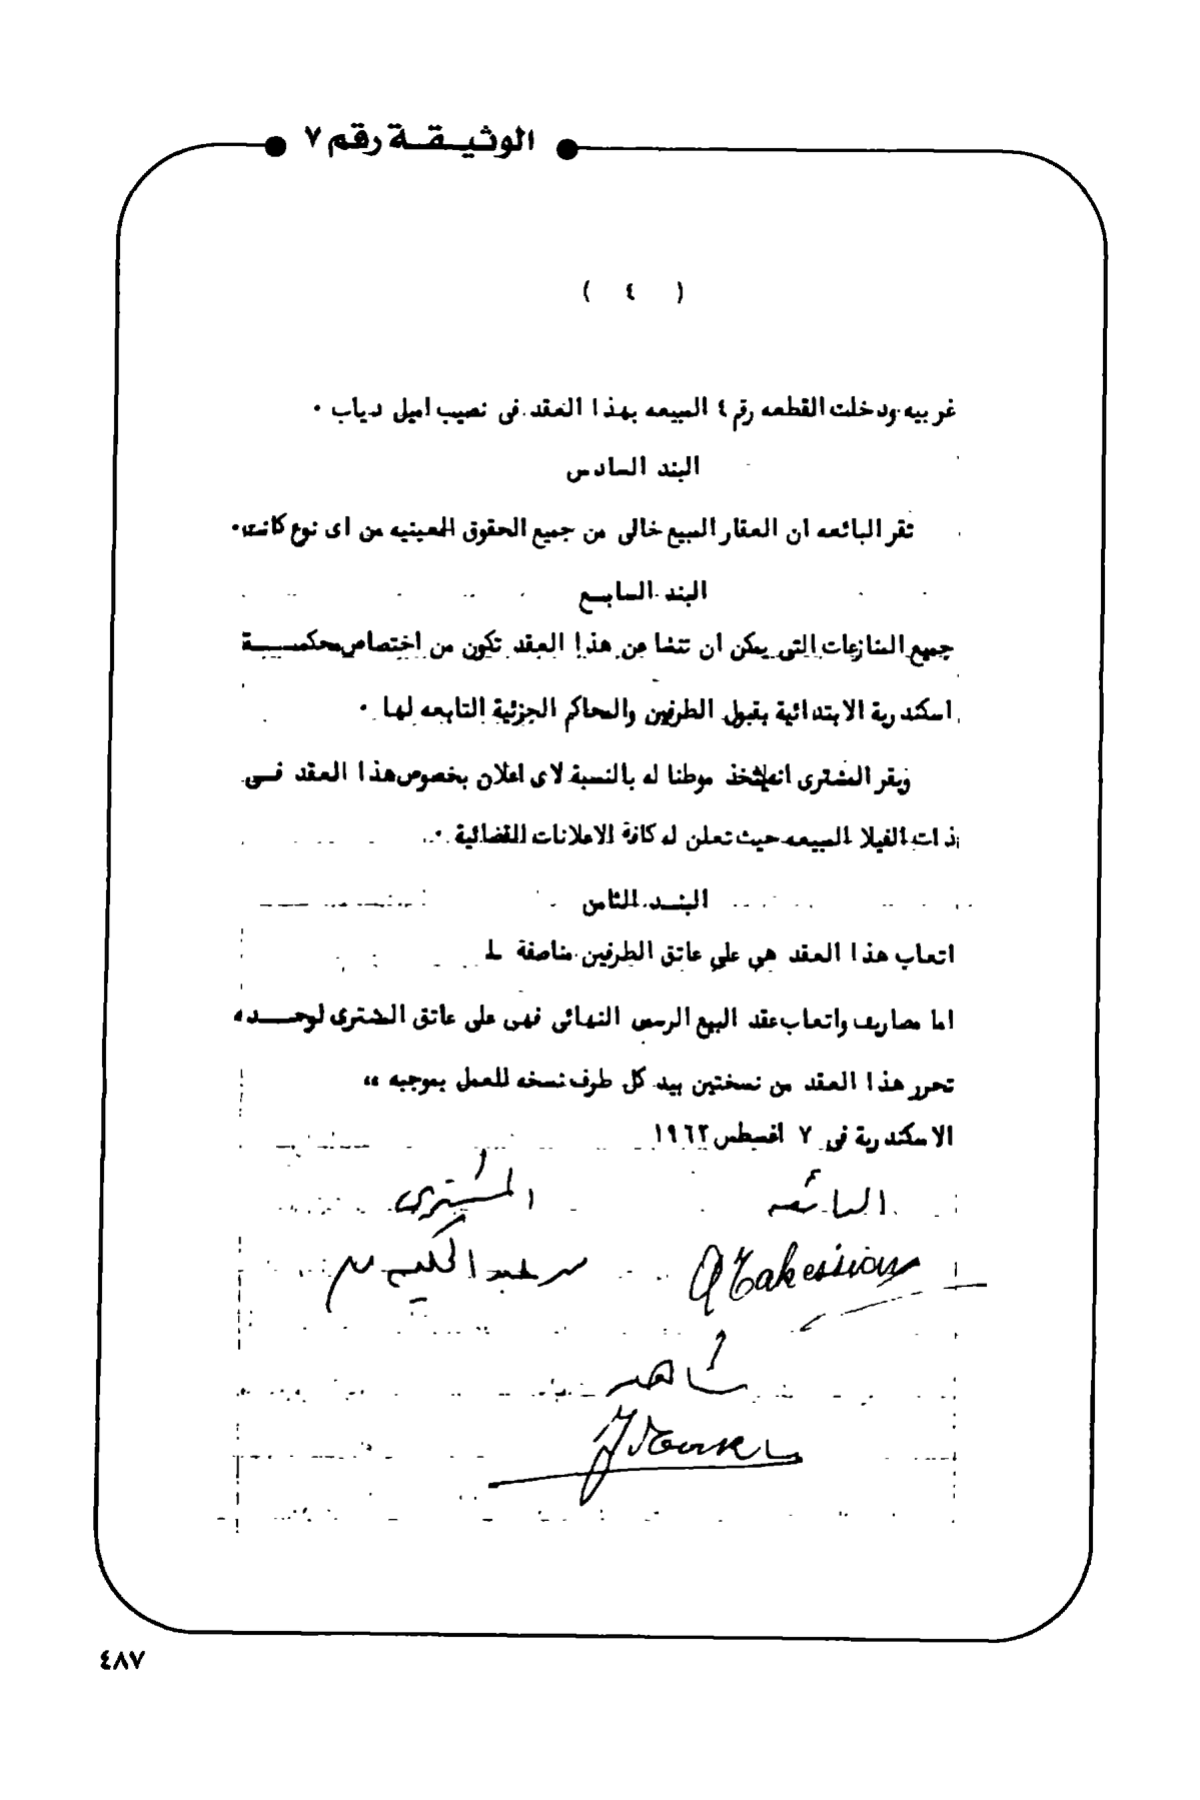 الوثيقة رقم ٧
( ٤ )
غربيه ودخلت القطعه رقم ٤ المبيعه بهذا العقد فى نصيب اميل دياب ٠
البند السادس
تقر البائعه ان العقار المبيع خالى من جميع الحقوق العينيه من اى نوع كانت٠
البند السابع
جميع المنازعات التى يمكن ان تنشا عن هذا العقد تكون من اختصاص محكمة
اسكندرية الابتدائية بقبول الطرفين والمحاكم الجزئية التابعه لها ٠
ويقر المشترى انه يتخذ موطنا له بالنسبة لاى اعلان بخصوص هذا العقد فى
ذات الفيلا المبيعه حيث تعلن له كافة الاعلانات القضائية ٠
البند الثامن
اتعاب هذا العقد هى على عاتق الطرفين مناصفة
اما مصاريف واتعاب عقد البيع الرسمى النهائى فهى على عاتق المشترى لوحده
تحرر هذا العقد من نسختين بيد كل طرف نسخه للعمل بموجبه ،،
الاسكندرية فى ٧ اغسطس ١٩٦٢
البائعه
المشترى
عبد الحكيم
شاهد
٤٨٧